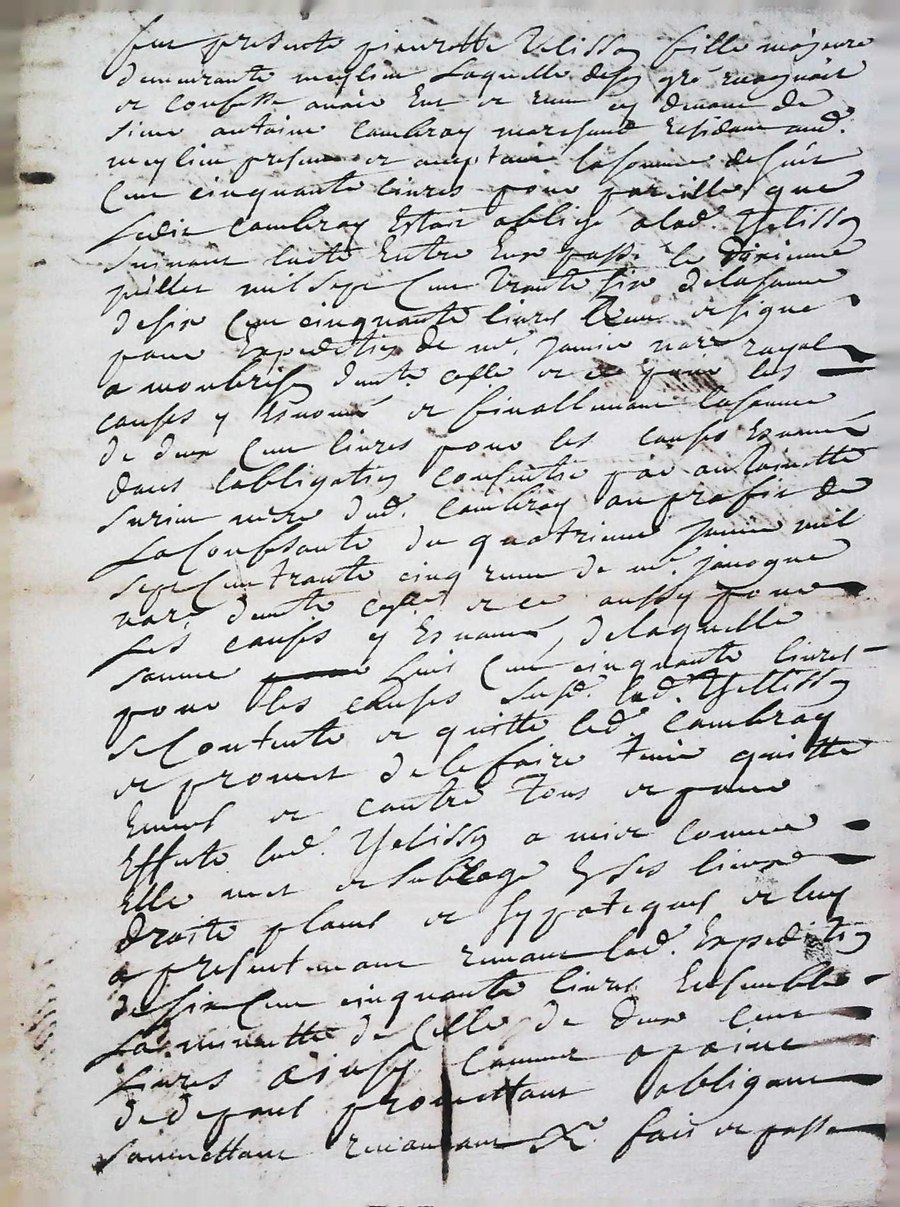 fut presente pierrotte Velissy fille majeure
demeurante meylieu Laquelle desy gré recognoit
et confesse avoir Eut et receu cy devant de
sieur antoine Cambray marchand residant aud.
meylieu present et acceptant lasomme de huit
Cent cinquante livres pour pareille que
Ledit Cambray Estoit obligé alad. Yelissy
suivant lacte Entre Eux passé le dixieme
juillet mil sept Cent trante six delasomme
desix Cent cinquante livres receu et signé
pour Expedition de me. notre royal
a monbrison dicelle et ce pour les
causes y Enoncé et finallement lasomme
de deux Cent livres pour les causes Enoncé
dans lobligation consentie par antoinette
surieu mere dud. Cambray au profit de
La Confessante du quatrieme Janvier mil
sept Cent trante cinq receu de me. janogue
notre. dicelle et ce aussy pour
Les causes y Enoncé, delaquelle
somme huit Cent cinquante livres
pour les causes susd. lad. Yellissy
se Contente et quitte led. Cambray
et promet delefaire tenir quitte
Envers et contre tous et pour
Effuts lad. Yelissy a mise comme
Elle met et subroge Esses lieux
droits places et hypoteques et luy
a presentement remis lad. Expedition
desix Cent cinquante livres Ensemble
La minutte de Celle de deux cent
Livres ainsy comme apaine
dedepens promettant obligeant
soumettant renonceant &c. fait et passé